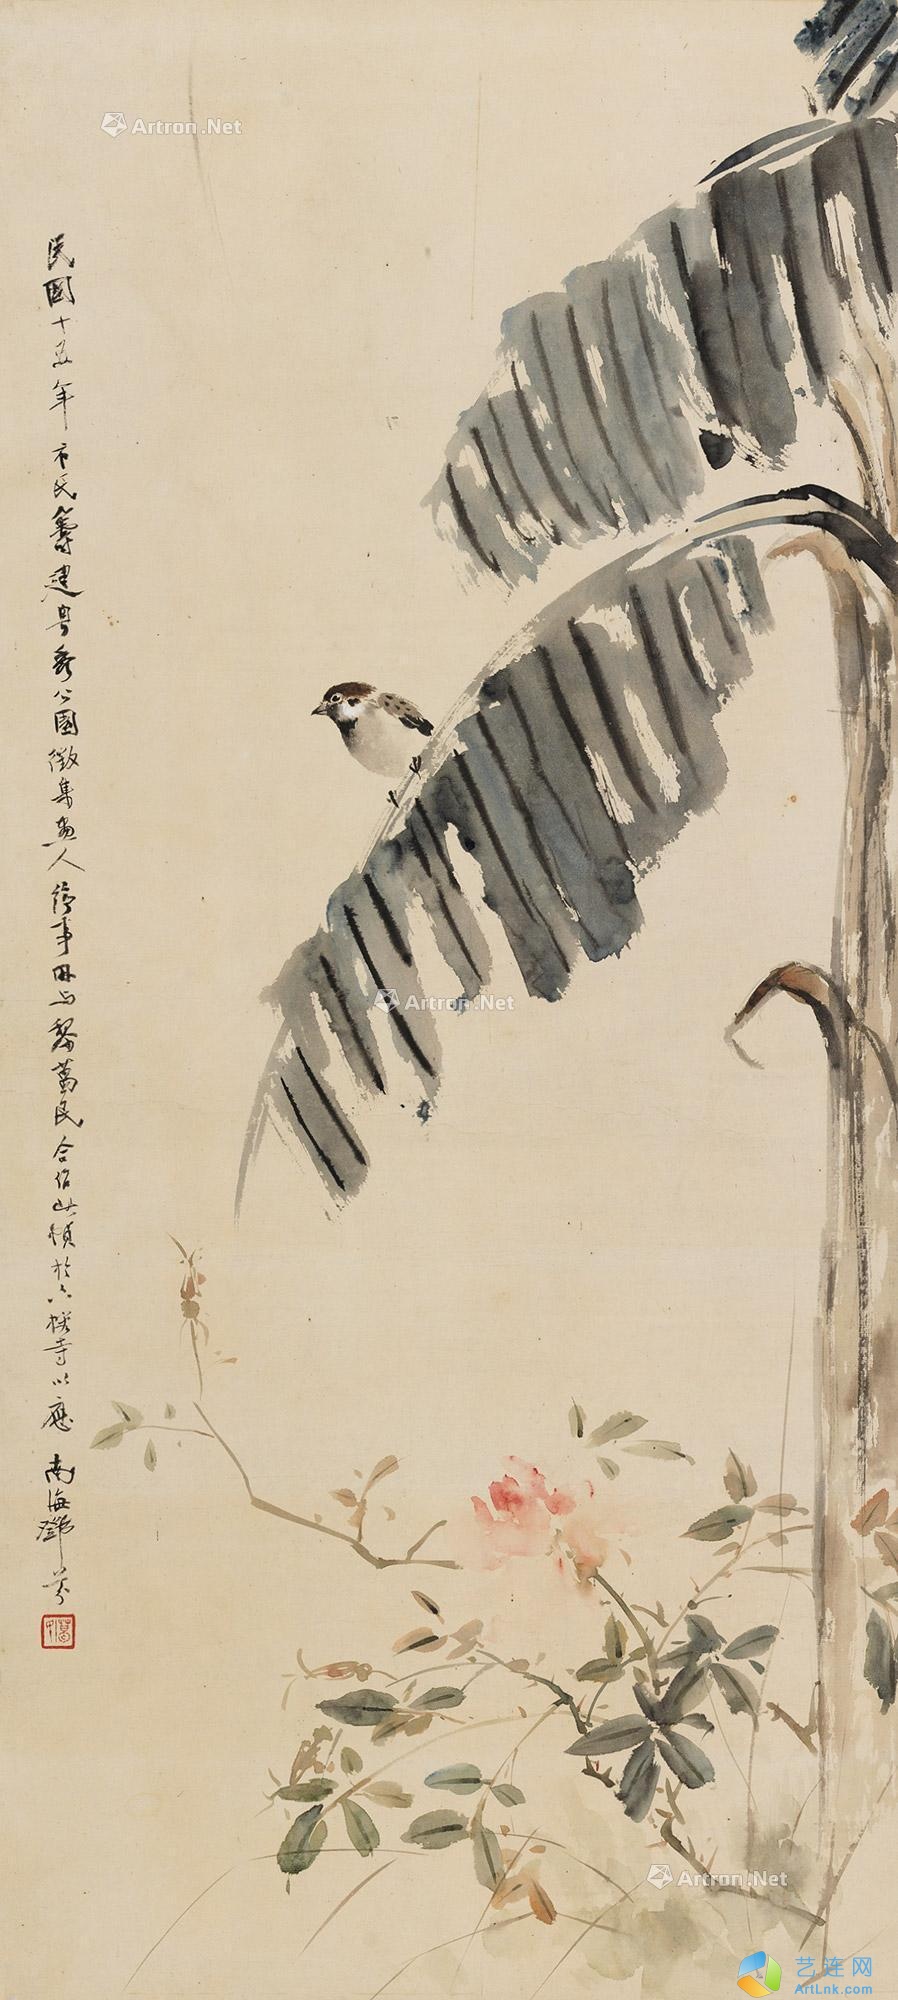 Artron.Net
民國十五年市民籌建粵秀公園徵集畫人 事 与黎葛民合作此幀於六榕寺以應 南海鄧芬
Artron.Net
Artron.Net
艺连网
ArtLnk.com